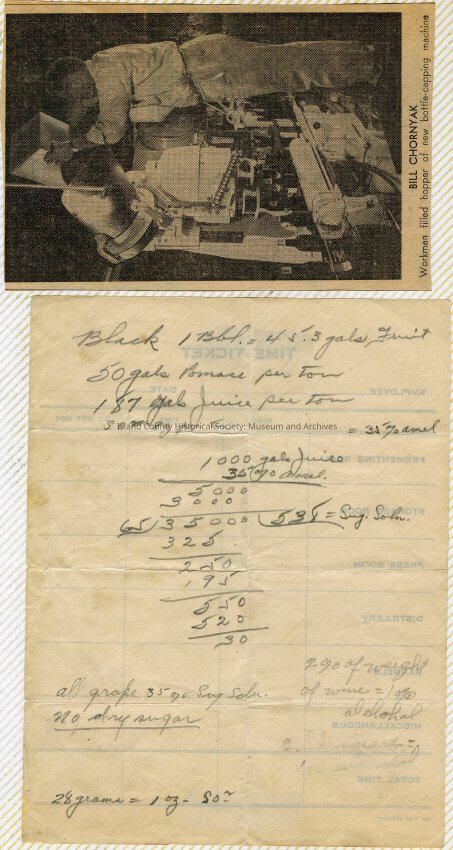 BILL CHORNYAK
Workman filled hopper of new bottle-capping machine
Black 1 Bbl. = 45.3 gals Fruit
50 gals Pomace per ton
187 gals Juice per ton
Island County Historical Society: Museum and Archives
= 35% amel
1000 gals Juice
35% amel.
5000
3000
65/35000 /535 = Sug. Soln.
325
250
195
550
520
30
2% of weight
of wine = 1%
alcohol
all grape 35% Sug Soln.
No dry sugar
28 grams = 1 oz -
TIME TICKET
EMPLOYEE
DATE
FERMENTING ROOM
STORAGE ROOM
PRESS ROOM
DISTILLERY
MISCELLANEOUS
TOTAL TIME